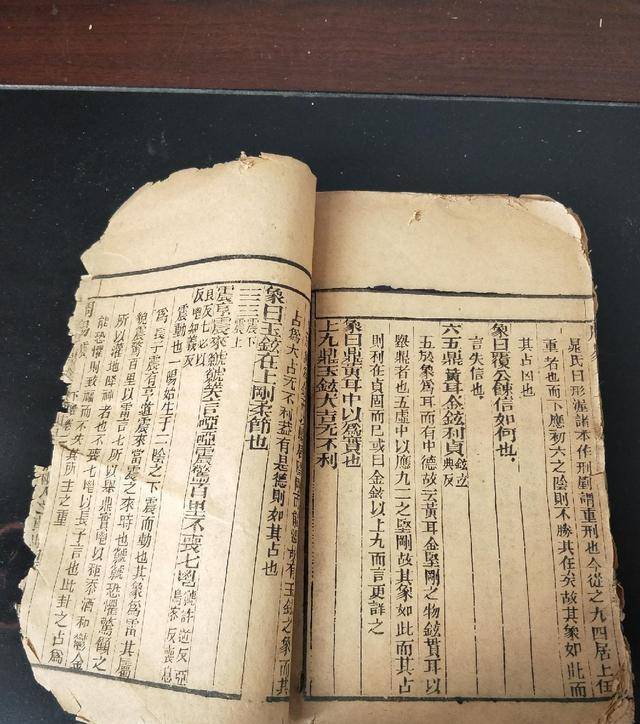 晁氏曰形渥諸本作刑剭謂重刑也今從之九四居上任
重者也而下應初六之陰則不勝其任矣故其象如此而
其占凶也
象曰覆公餗信如何也
言失信也
六五鼎黃耳金鉉利貞鉉玄典反
五於象爲耳而有中德故云黃耳金堅剛之物鉉貫耳以
舉鼎者也五虛中以應九二之堅剛故其象如此而其占
則利在貞固而已或曰金鉉以上九而言更詳之
象曰鼎黃耳中以爲實也
上九鼎玉鉉大吉无不利
故有玉鉉之象而其
占爲大吉无不利蓋有是德則如其占也
象曰玉鉉在上剛柔節也
震下震上
震亨震來虩虩笑言啞啞震驚百里不喪匕鬯虩許逆反啞烏客反喪息
良反匕必以反
震動也一陽始生于二陰之下震而動也其象爲雷其
爲長子震有亨道震來當震之來時也虩虩恐懼驚顧之
貌震驚百里以雷言匕所以舉鼎實鬯以秬黍酒和鬱金
所以灌地降神者也不喪匕鬯以長子言也此卦之占爲
能恐懼則致福而不失其所主之重